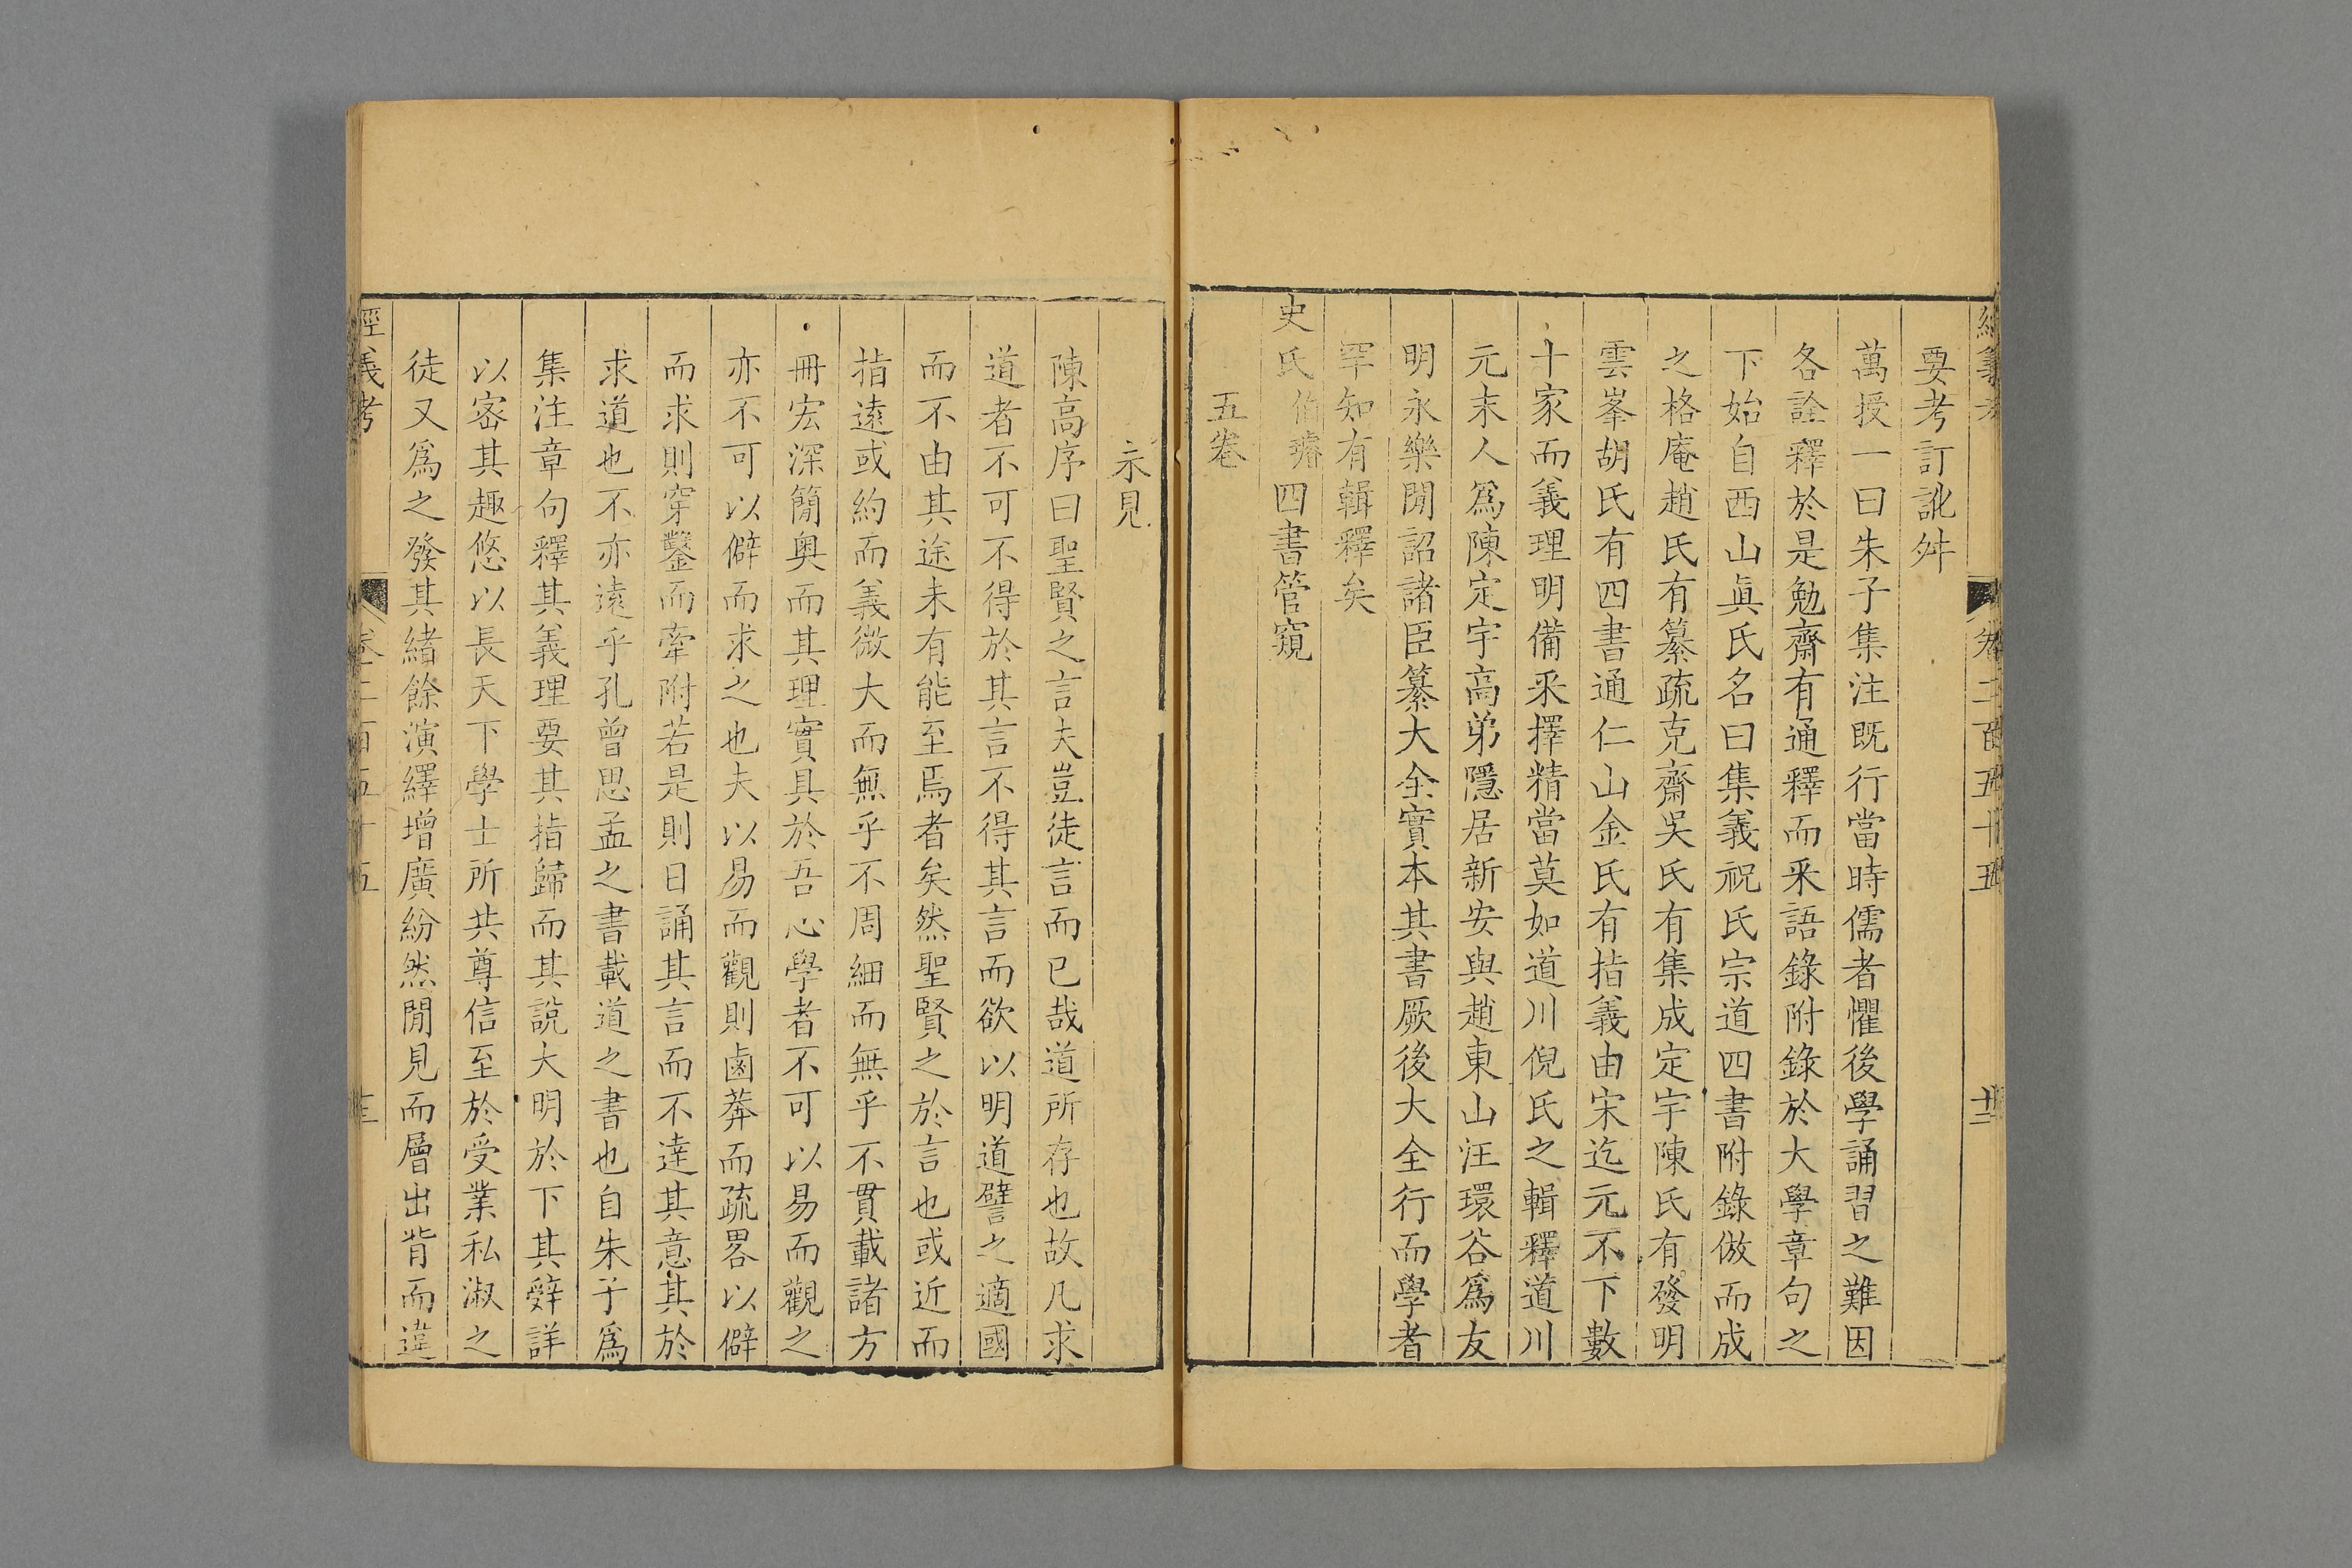 經義考 卷二百五十五 十二
要考訂訛舛
萬授一曰朱子集注既行當時儒者懼後學誦習之難因
各詮釋於是勉齋有通釋而采語錄附錄於大學章句之
下始自西山眞氏名曰集義祝氏宗道四書附錄倣而成
之格庵趙氏有纂疏克齋吳氏有集成定宇陳氏有發明
雲峯胡氏有四書通仁山金氏有指義由宋迄元不下數
十家而義理明備采擇精當莫如道川倪氏之輯釋道川
元末人爲陳定宇高弟隱居新安與趙東山汪環谷爲友
明永樂閒詔諸臣纂大全實本其書厥後大全行而學者
罕知有輯釋矣
史氏伯璿四書管窺
五卷
未見
陳高序曰聖賢之言夫豈徒言而已哉道所存也故凡求
道者不可不得於其言不得其言而欲以明道譬之適國
而不由其途未有能至焉者矣然聖賢之於言也或近而
指遠或約而義微大而無乎不周細而無乎不貫載諸方
冊宏深簡奧而其理實具於吾心學者不可以易而觀之
亦不可以僻而求之也夫以易而觀則鹵莽而疏畧以僻
而求則穿鑿而牽附若是則日誦其言而不達其意其於
求道也不亦遠乎孔曾思孟之書載道之書也自朱子爲
集注章句釋其義理要其指歸而其說大明於下其辭詳
以密其趣悠以長天下學士所共尊信至於受業私淑之
徒又爲之發其緒餘演繹增廣紛然閒見而層出背而違
經義考 卷二百五十五 十三